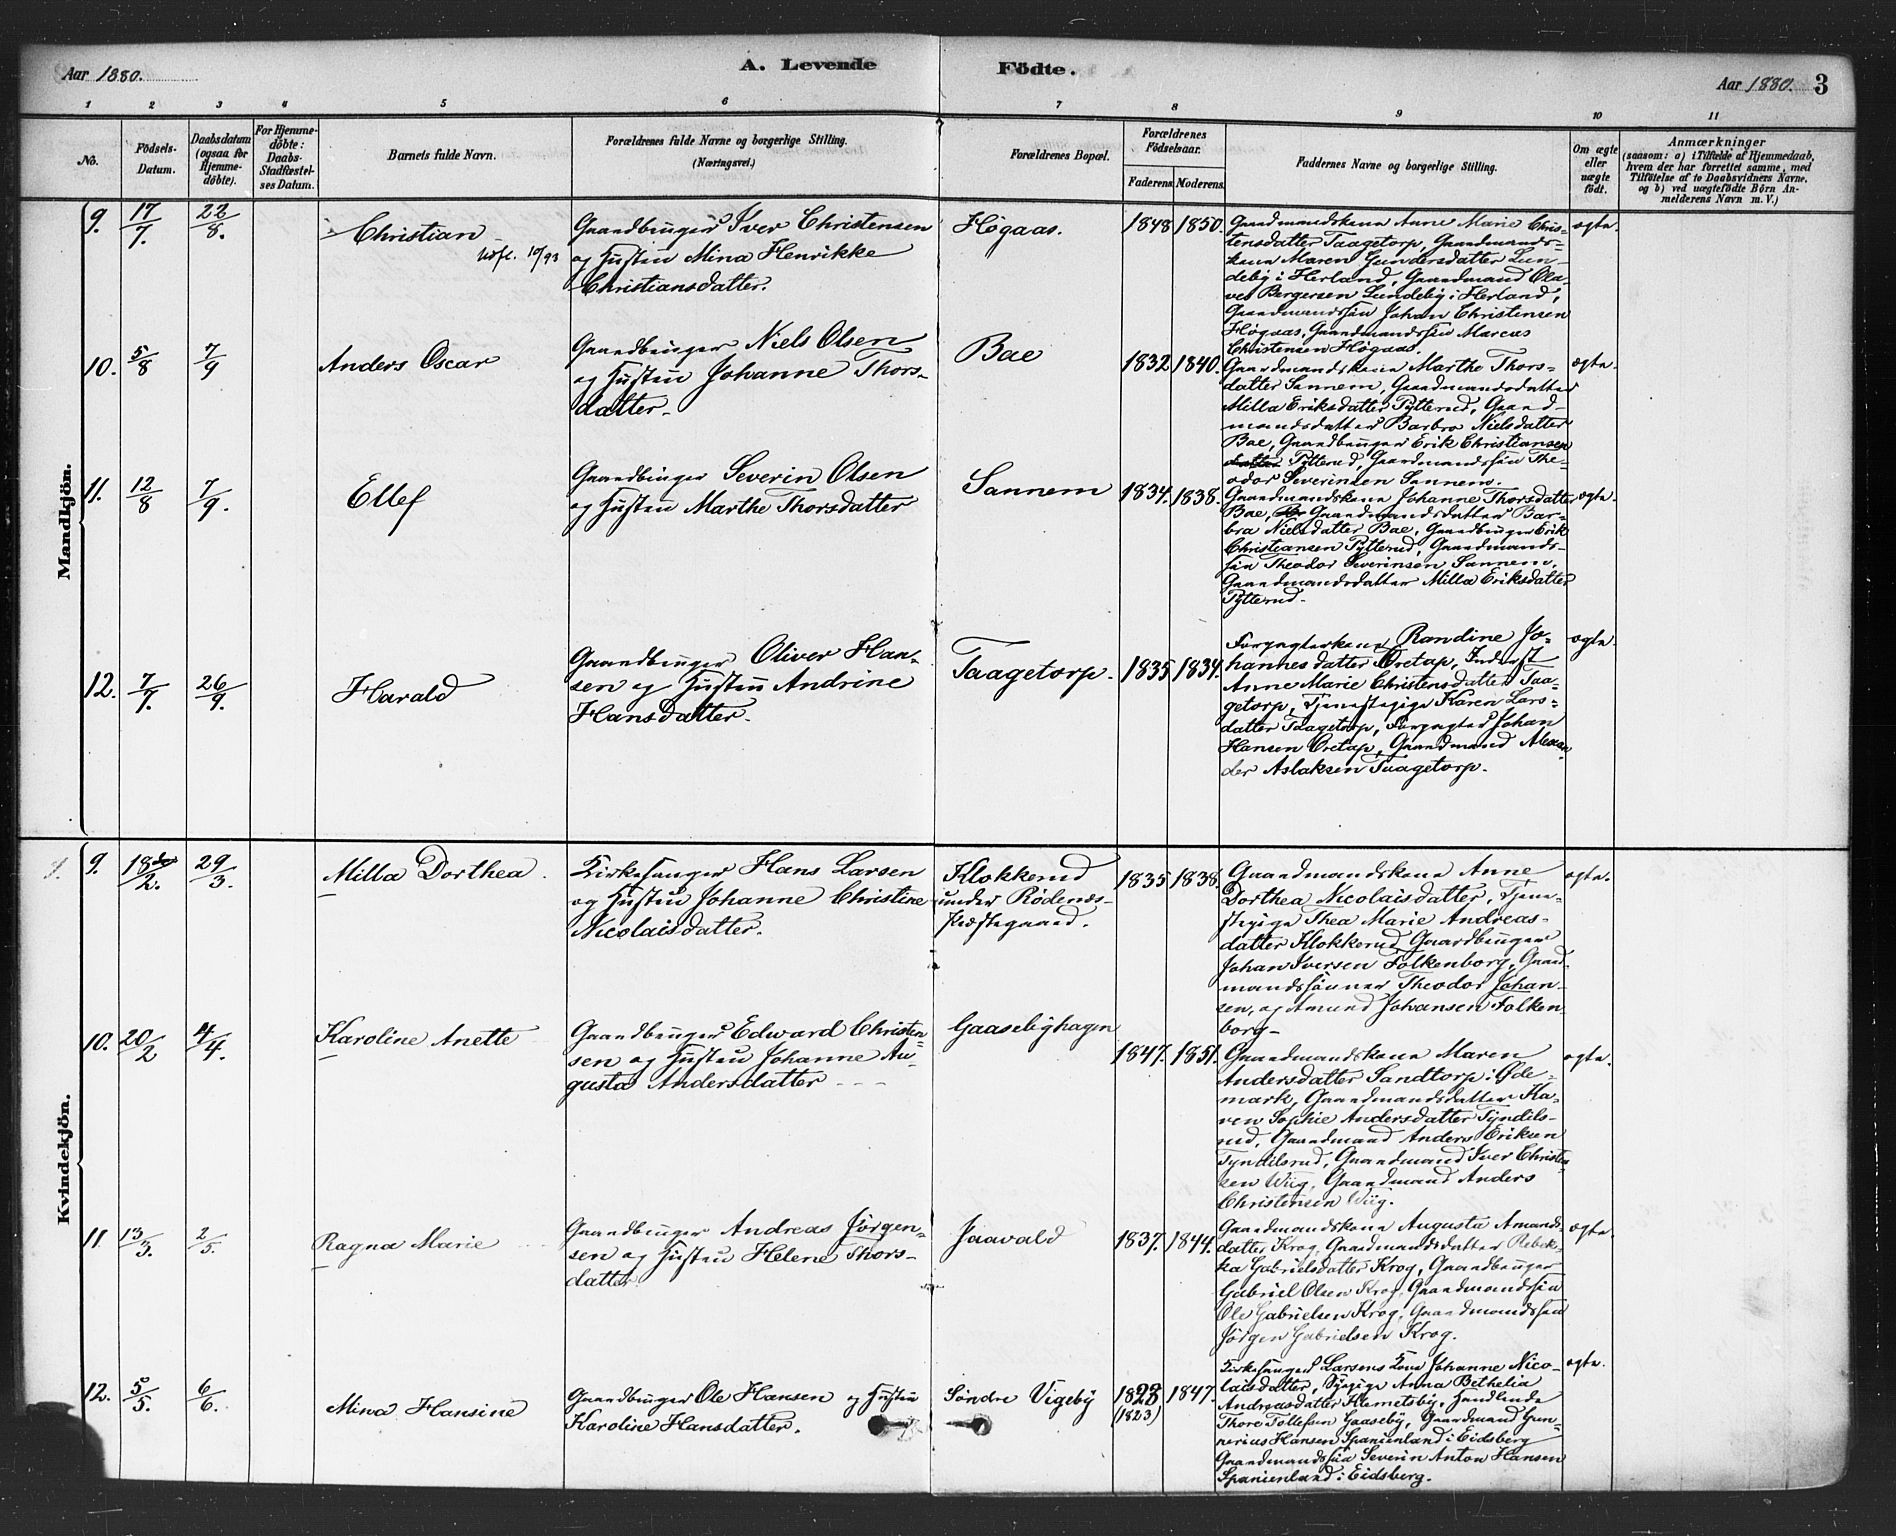 Aar 1880.
A. Levende Födte.
Aar 1880. 3
1 2 3 4 5 6 7 8 9 10 11
No.
Födsels-
Datum.
Daabsdatum
(ogsaa for
Hjemme-
döbte).
For Hjemme-
döbte:
Daabs-
Stadfæstel-
ses Datum.
Barnets fulde Navn.
Forældrenes fulde Navne og borgerlige Stilling.
(Næringsvei.)
Forældrenes Bopæl.
Forældrenes
Födselsaar.
Faderens. Moderens.
Faddernes Navne og borgerlige Stilling.
Om ægte
eller
uægte
födt.
Anmærkninger
(saasom: a) i Tilfælde af Hjemmedaab,
hvem der har forrettet samme, med
Tilföielse af to Daabsvidners Navne,
og b) ved uægtefödte Börn An-
melderens Navn m. V.)
Mandkjön.
9. 17/7. 22/8.
Christian
Udfl. 10/93
Gaardbruger Iver Christensen
og Hustru Mina Henrikke
Christiansdatter.
Høgaas.
1848 1850.
Gaardmandskone Anne Marie Chris-
tensdatter Taagetorp, Gaardmands-
kone Maren Gundersdatter Lun-
deby i Herland, Gaardmand Ola-
ves Bergersen Lundeby i Herland,
Gaardmandssøn Johan Christensen
Høgaas, Gaardmandssøn Marcus
Christensen Høgaas.
ægte.
10. 5/8 7/9
Anders Oscar
Gaardbruger Niels Olsen
og Hustru Johanne Thors-
datter.
Bae
1832 1840.
Gaardmandskone Marthe Thors-
datter Sannem, Gaardmandsdatter
Milla Eriksdatter Pytterud, Gaard-
mandsdatter Barbro Nielsdatter
Bae, Gaardbruger Erik Christiansen
Pytterud, Gaardmandssøn The-
odor Severinsen Sannem.
ægte.
11. 12/8 7/9.
Ellef
Gaardbruger Severin Olsen
og Hustru Marthe Thorsdatter
Sannem
1834. 1838.
Gaardmandskone Johanne Thorsdatter
Bae, Gaardmandsdatter Bar-
bra Nielsdatter Bae, Gaardbruger Erik
Christiansen Pytterud, Gaardmands-
søn Theodor Severinsen Sannem,
Gaardmandsdatter Milla Eriksdatter
Pytterud.
ægte.
12. 7/7. 26/9.
Harald
Gaardbruger Oliver Han-
sen og Hustru Andrine
Hansdatter.
Taagetorp.
1835 1834.
Forpagterkone Randine Jo-
hannesdatter Oretap, Inderst
Anne Marie Christensdatter Taa-
getorp, Tjenestepige Karen Lars-
datter Taagetorp, Forpagter Johan
Hansen Oretap, Gaardmand Alexan-
der Aslaksen Taagetorp.
ægte.
Kvindekjön.
9. 18/2. 29/3.
Milla Dorthea.
Kirkesanger Hans Larsen
og Hustru Johanne Christine
Nicolaisdatter.
Klokkerud
under Rødenæs-
Præstegaard.
1835 1838.
Gaardmandskone Anne
Dorthea Nicolaisdatter, Tjene-
stepige Thea Marie Andreas-
datter Klokkerud, Gaardbruger
Johan Iversen Folkenborg, Gaard-
mandssønner Theodor Johan-
sen, og Amund Johansen Folken
borg-
ægte.
10. 20/2 4/4.
Karoline Anette
Gaardbruger Edward Christen-
sen og Hustru Johanne Au-
gusta Andersdatter
Gaasebyhagen
1847. 1851.
Gaardmandskone Maren
Andersdatter Sandtorp i Øde-
mark, Gaardmandsdatter Ka-
ren Sophie Andersdatter Tyndils-
rud, Gaardmand Anders Eriksen
Tyndilsrud, Gaardmand Iver Christen-
sen Wiig, Gaardmand Anders
Christensen Wiig.
ægte.
11 13/3. 2/5.
Ragna Marie
Gaardbruger Andreas Jørgen-
sen og Hustru Helene Thors-
datter
Jaavald
1837. 1844.
Gaardmandskone Augusta Amunds-
datter Krog, Gaardmandsdatter Rebek-
ka Gabrielsdatter Krog, Gaardbruger
Gabriel Olsen Krog, Gaardmandssøn
Ole Gabrielsen Krog, Gaardmandssøn
Jørgen Gabrielsen Krog.
ægte.
12. 5/5. 6/6.
Mina Hansine
Gaardbruger Ole Hansen og Hustru
Karoline Hansdatter.
Søndre Vigeby
1823 1847.
(1823)
Kirkesanger Larsens Kone Johanne Nico-
laisdatter, Sypige Anna Bethelia
Andreasdatter Klemetsby, Handlende
Thore Tollefsen Gaaseby, Gaardmand Gun-
nerius Hansen Spanienland i Eidsberg
Gaardmandssøn Severin Anton Hansen
Spanienland i Eidsberg.
ægte.